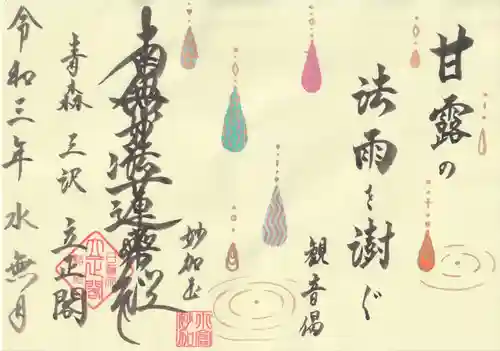 甘露の
法雨を澍ぐ
観音偈
妙加
南無妙法蓮華経
青森 三沢 立正閣
令和三年 水無月
立正閣